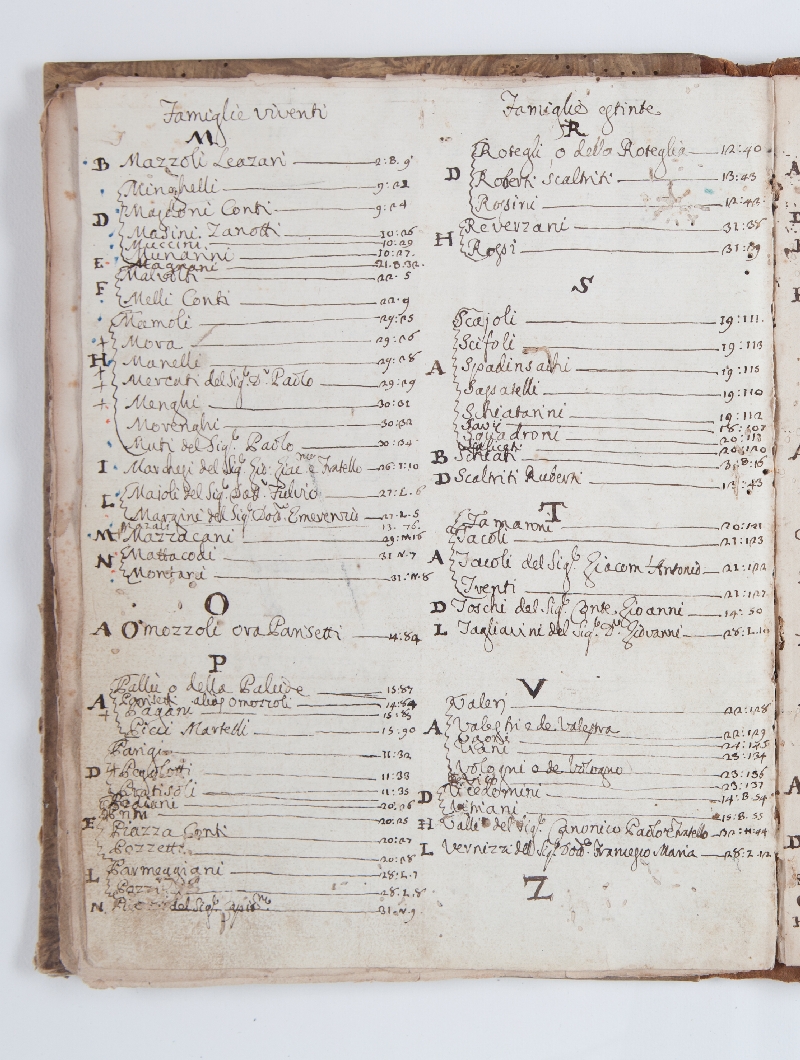 Famiglie viventi
M
B Mazzoli Leazari 2:8.9
Minghelli 9:21
D Majdoni Conti 9:24
Masini Zanotti 10:26
Muccini 10:29
Munanni 10:27
E Magnani 21.8.32
F Malvolti 22.5
Melli Conti 22.9
Mamoli 29:25
+ Mova 29:26
H Manelli 29:28
+ Mercati del Sig. Dr Paolo 29:29
+ Menghi 30:31
Movenghi 30:32
Muti del Sig. Paolo 30:34
I Marchesi del Sig. Gio: e fratello 26:I:10
L Majoli del Sig. Dott. Fulvio 27:L.6
Margini del Sig. Dott. 27.L.5
M Mazzacani 29:M:16
N Mattacodi 31.N.7
Montani 31:N.8
O
A Omozzoli ora Parisetti 14:84
P
Pallu o della Palude 15:87
A Parisetti alias Omozzoli 14:84
+ Pagani 15:89
Picci Martelli 15:90
Parigi 11:32
D 11:33
Pratisoli 11:35
20:26
E 20:25
Piazza Conti 20:27
Pozzetti 20:28
L Parmeggiani 28:L.7
Pozzi 28:L.8
N del Sig. 31:N.9
Famiglie estinte
R
Rotegli o della Roteglia 12:40
D Roberti Scaltriti 13:43
Rossini 12:42
H Reverzani 31:38
Rossi 31:39
S
Scajoli 19:111
Scifoli 19:113
A Spadinsachi 19:115
Sassatelli 19:110
Schiatarini 19:112
Savii 18:107
Squadroni 20:118
20:120
B Schiati 3:B:16
D Scaltriti Ruberti 13:43
T
Tamaroni 20:121
Tacoli 21:123
A Tacoli del Sig. Giacom'Antonio 21:122
Iventi 21:127
D Toschi del Sig. Conte Gioanni 14:50
L Tagliavini del Sig. Dn Giovanni 28:L.10
V
Valeri 22:128
A Valestri e de Valestra 22:129
Vani 23:134
Vologni o de Vologno 23:136
23:137
D Vicedomini 14:B.54
15:B.55
H Valli del Sig. Canonico Paolo e fratello 32:H:44
L Vernizzi del Sig. Dott. Francesco Maria 28:L.12
Z